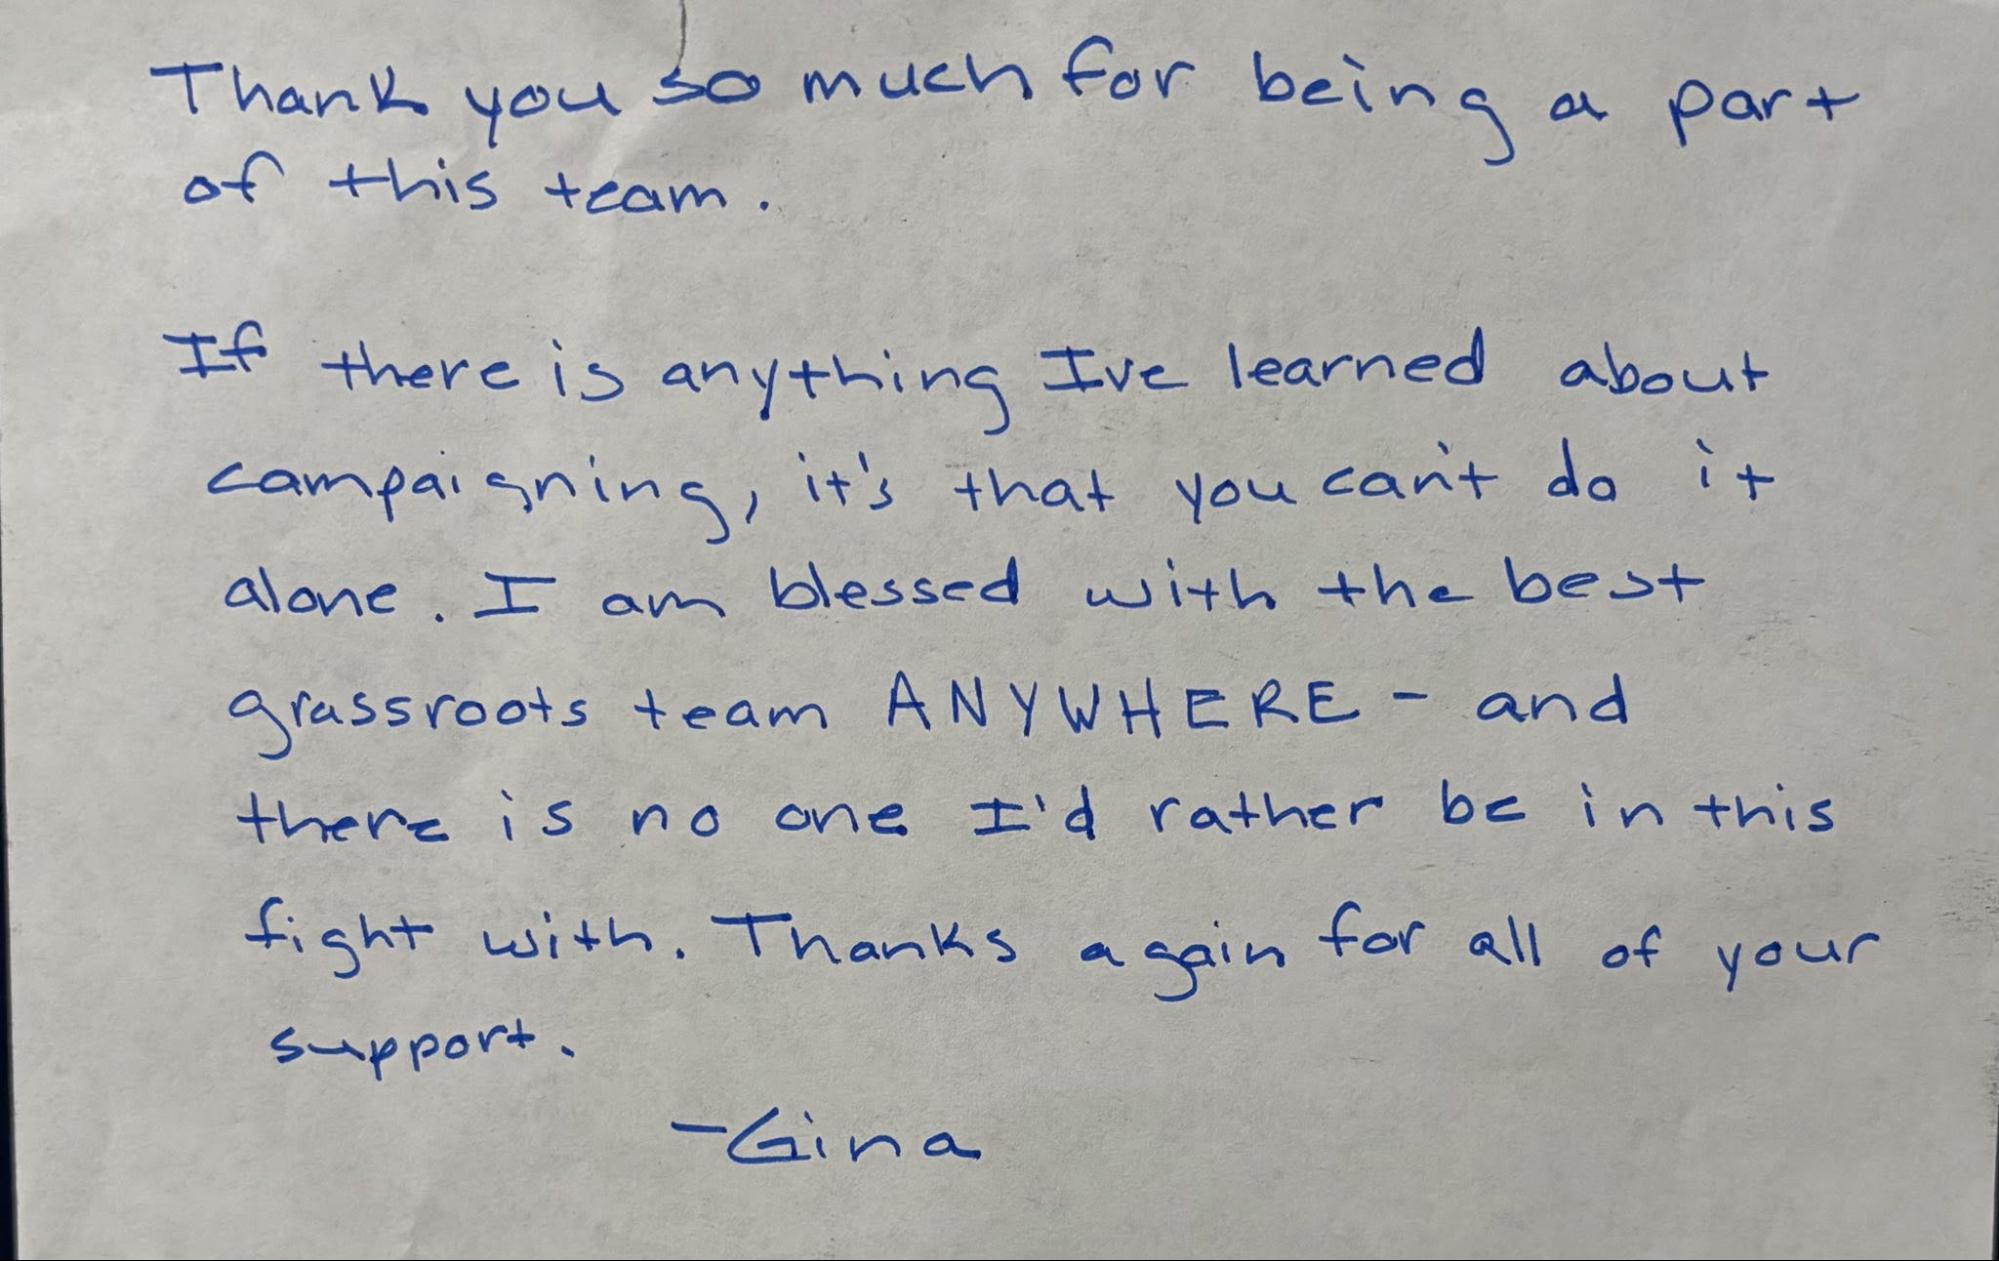 Thank you so much for being a part
of this team.
If there is anything Ive learned about
campaigning, it's that you can't do it
alone. I am blessed with the best
grassroots team ANYWHERE - and
there is no one I'd rather be in this
fight with. Thanks again for all of your
support.
-Gina